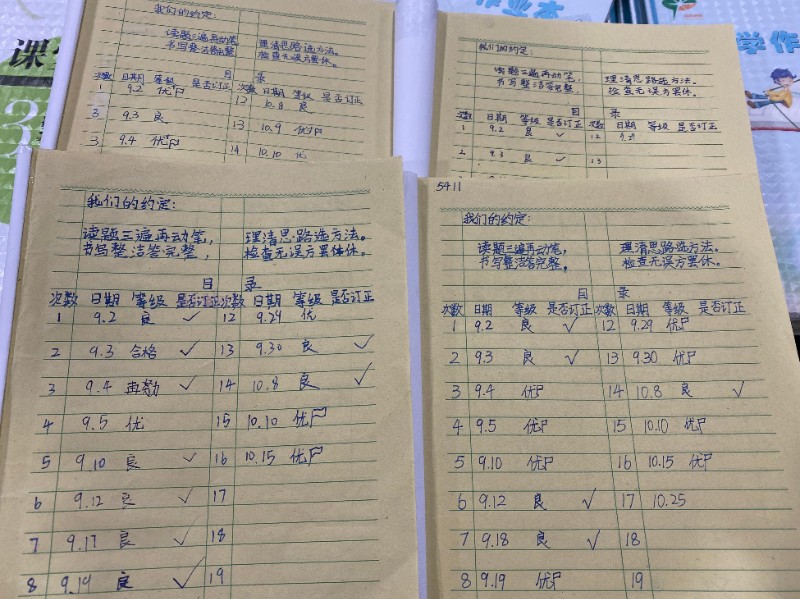 课
作业本
学作
我们的约定:
读题三遍再动笔, 理清思路选方法。
书写整洁答完整, 检查无误方罢休。
目 录
次数 日期 等级 是否订正 次数 日期 等级 是否订正
1 9.2 优 12 10.8 良
3 9.3 良 13 10.9 优
3 9.4 优 14 10.10 优
我们的约定:
读题三遍再动笔, 理清思路选方法。
书写整洁答完整, 检查无误方罢休。
目 录
次数 日期 等级 是否订正 次数 日期 等级 是否订正
1 9.2 良 ✓ 12
2 9.3 良 ✓ 13
我们的约定:
读题三遍再动笔, 理清思路选方法。
书写整洁答完整, 检查无误方罢休。
目 录
次数 日期 等级 是否订正 次数 日期 等级 是否订正
1 9.2 良 ✓ 12 9.29 优
2 9.3 合格 ✓ 13 9.30 良 ✓
3 9.4 再努力 ✓ 14 10.8 良 ✓
4 9.5 优 15 10.10 优
5 9.10 良 ✓ 16 10.15 优
6 9.12 良 ✓ 17
7 9.17 良 ✓ 18
8 9.19 良 ✓ 19
5411
我们的约定:
读题三遍再动笔, 理清思路选方法。
书写整洁答完整, 检查无误方罢休。
目 录
次数 日期 等级 是否订正 次数 日期 等级 是否订正
1 9.2 良 ✓ 12 9.29 优
2 9.3 良 ✓ 13 9.30 优
3 9.4 优 14 10.8 良 ✓
4 9.5 优 15 10.10 优
5 9.10 优 16 10.15 优
6 9.12 良 ✓ 17 10.25
7 9.18 良 ✓ 18
8 9.19 优 19